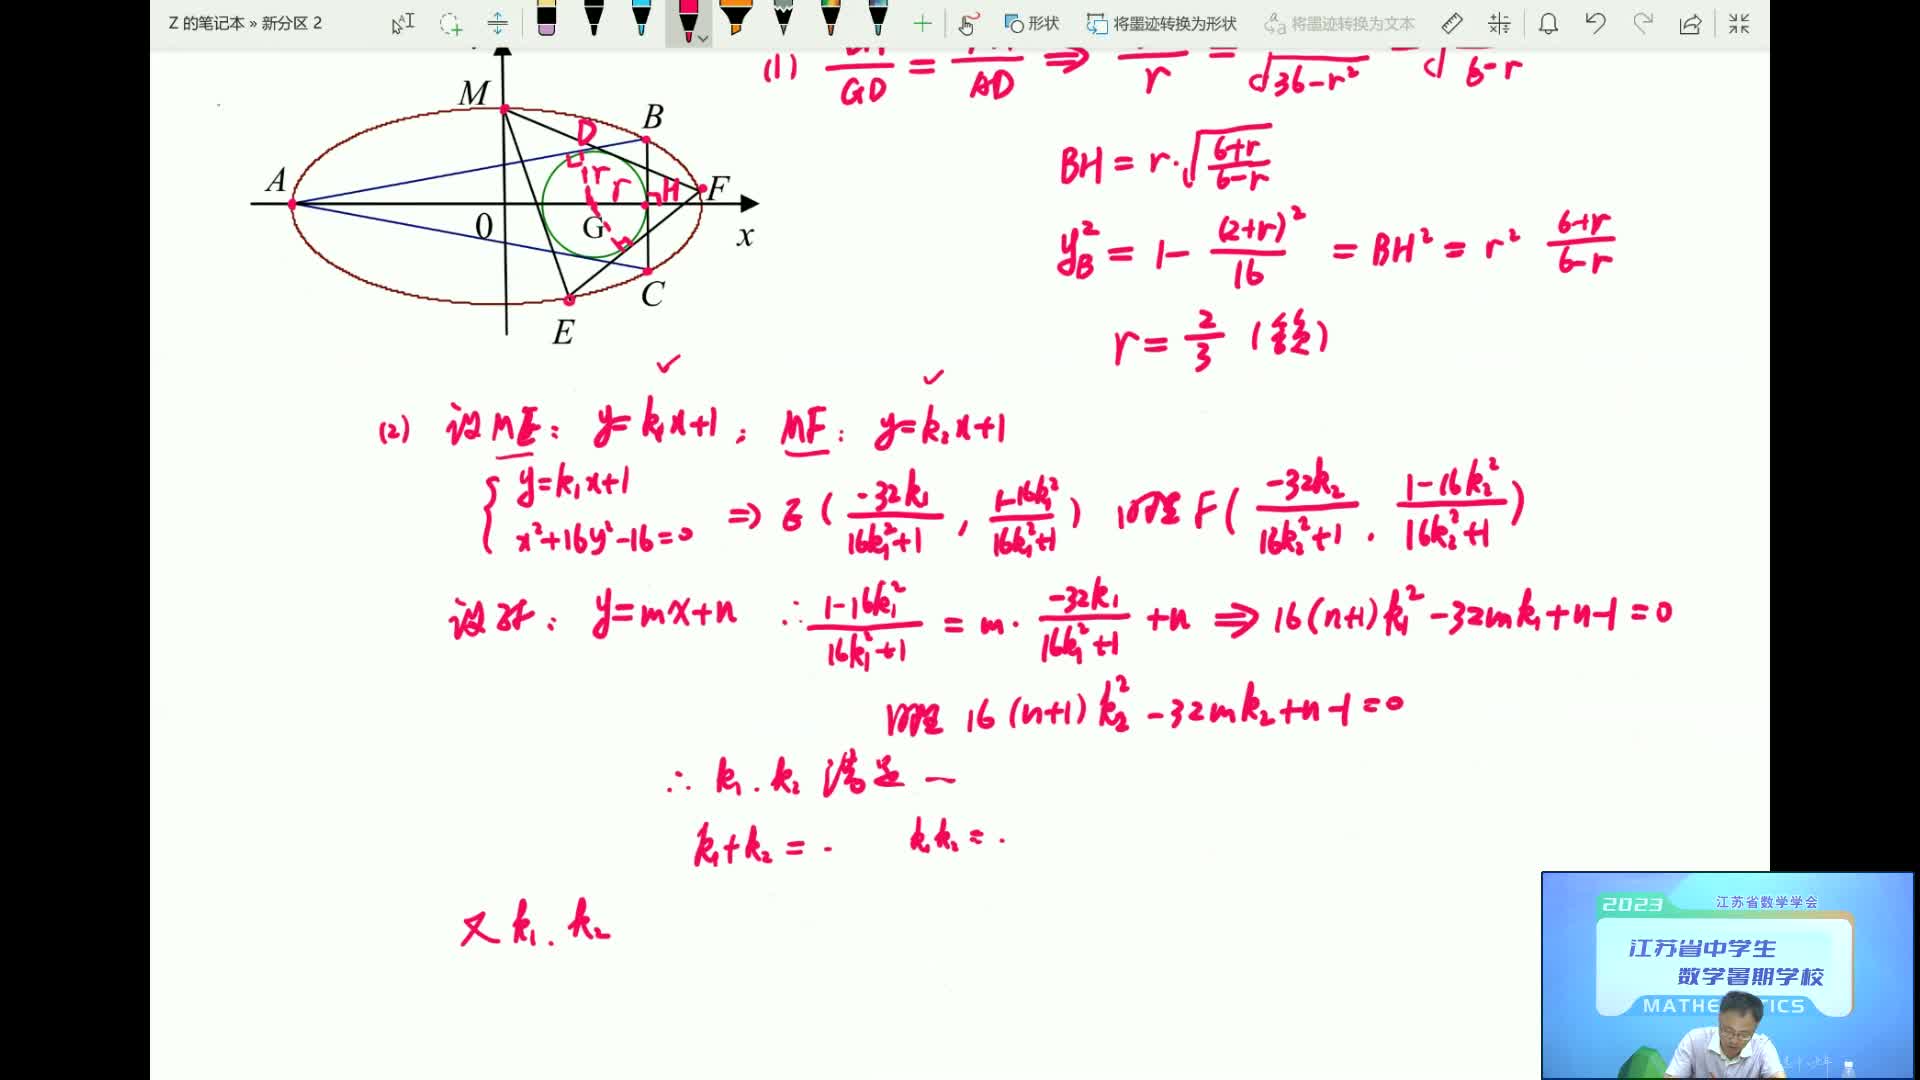 Z 的笔记本 » 新分区 2
形状
将墨迹转换为形状
将墨迹转换为文本
M
B
D
A
r
r
H
F
0
G
x
C
E
(1) GD = AD ⇒ r = √36-r² = √6-r
BH = r·√(6+r)/(6-r)
y_B² = 1 - (2+r)²/16 = BH² = r² (6+r)/(6-r)
r = 2/3 (舍负)
(2) 设ME: y=k₁x+1; MF: y=k₂x+1
{ y=k₁x+1
x²+16y²-16=0 ⇒ E(-32k₁/(16k₁²+1), (1-16k₁²)/(16k₁²+1)) 同理 F(-32k₂/(16k₂²+1), (1-16k₂²)/(16k₂²+1))
设EF: y=mx+n ∴ (1-16k₁²)/(16k₁²+1) = m·(-32k₁)/(16k₁²+1) + n ⇒ 16(n+1)k₁²-32mk₁+n-1=0
同理 16(n+1)k₂²-32mk₂+n-1=0
∴ k₁.k₂ 满足 一
k₁+k₂ = · k₁k₂ = ·
又 k₁. k₂
2023
江苏省数学学会
江苏省中学生
数学暑期学校